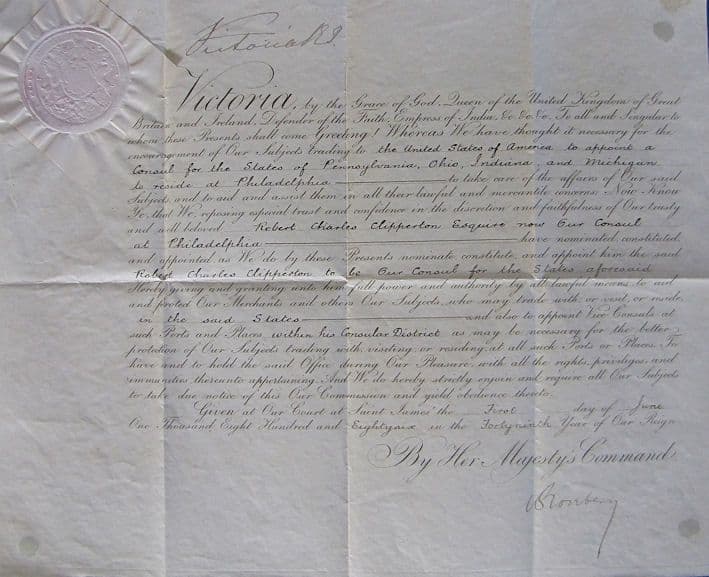 Victoria R I
Victoria, by the Grace of God, Queen of the United Kingdom of Great
Britain and Ireland, Defender of the Faith, Empress of India, &c &c &c. To all and Singular to
whom these Presents shall come Greeting! Whereas We have thought it necessary for the
encouragement of Our Subjects trading to the United States of America to appoint a
Consul for the States of Pennsylvania, Ohio, Indiana, and Michigan
to reside at Philadelphia to take care of the affairs of Our said
Subjects and to aid and assist them in all their lawful and mercantile concerns. Now Know
Ye, that We, reposing especial trust and confidence in the discretion and faithfulness of Our trusty
and well beloved Robert Charles Clipperton Esquire now Our Consul
at Philadelphia have nominated, constituted,
and appointed as We do by these Presents nominate, constitute, and appoint him the said
Robert Charles Clipperton to be Our Consul for the States aforesaid
Hereby giving and granting unto him full power and authority by all lawful means to aid
and protect Our Merchants and others Our Subjects who may trade with or visit, or reside
in the said States and also to appoint Vice Consuls at
such Ports and Places within his Consular District as may be necessary for the better
protection of Our Subjects trading with, visiting or residing at all such Ports or Places. To
have and to hold the said Office during Our Pleasure with all the rights, privileges and
immunities thereunto appertaining. And We do hereby strictly enjoin and require all Our Subjects
to take due notice of this Our Commission and yield obedience thereto.
Given at Our Court at Saint James' the First day of June
One Thousand Eight Hundred and Eightysix in the Fortyninth Year of Our Reign
By Her Majesty's Command
Rosebery